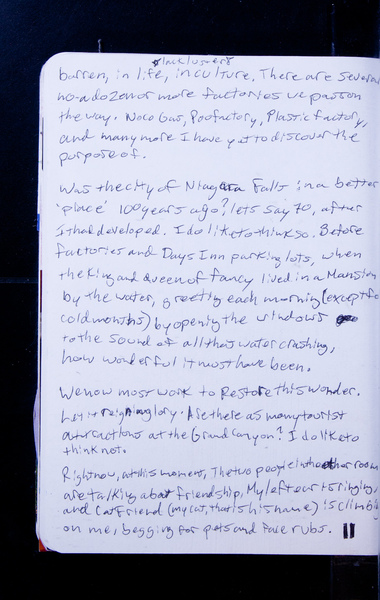 lacklusters
barren, in life, in culture. There are several
no-a dozen or more factories we pass on
the way. Noco Gas, Poofactory, Plastic factory,
and many more I have yet to discover the
purpose of.
Was the city of Niagara Falls in a better
'place' 100 years ago? lets say 70, after
it had developed. I do like to think so. Before
factories and Days Inn parking lots, when
the King and queen of fancy lived in a Mansion
by the water, greeting each morning (except for
cold months) by opening the windows
to the sound of all that water crashing,
how wonderful it must have been.
We now most work to Restore this wonder.
Let it reign in glory. Are there as many tourist
attractions at the Grand Canyon? I do like to
think not.
Right now, at this moment, The two people in the other room
are talking about friendship, My left ear is ringing,
and Cat Friend (my cat, that is his name) is climbing
on me, begging for pets and face rubs. 11